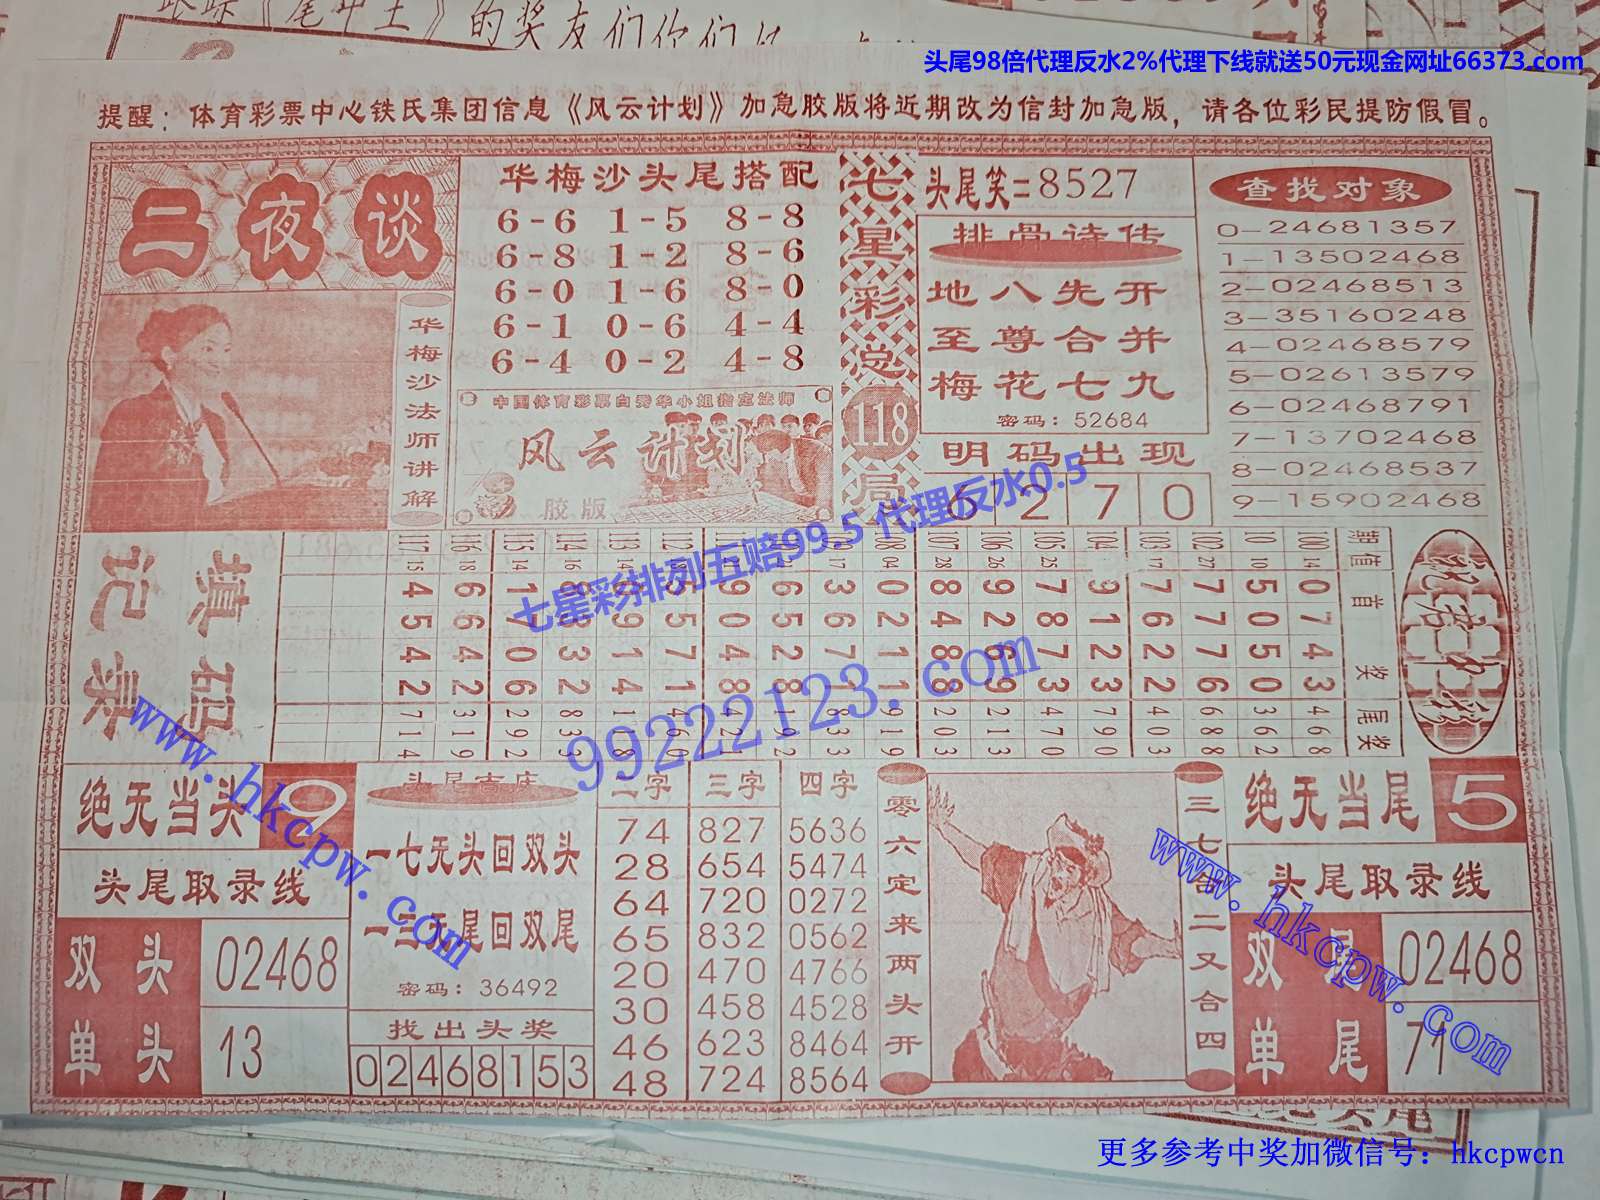 头尾98倍代理反水2%代理下线就送50元现金网址66373.com
提醒：体育彩票中心铁氏集团信息《风云计划》加急胶版将近期改为信封加急版，请各位彩民提防假冒。
二夜谈
华梅沙法师讲解
华梅沙头尾搭配
6-6 1-5 8-8
6-8 1-2 8-6
6-0 1-6 8-0
6-1 0-6 4-4
6-4 0-2 4-8
中国体育彩票白秀华小姐指定法师
风云计划
胶版
七星彩总118局
头尾笑=8527
排骨诗传
地八先开
至尊合并
梅花七九
密码：52684
明码出现
6 2 7 0
查找对象
0-24681357
1-13502468
2-02468513
3-35160248
4-02468579
5-02613579
6-02468791
7-13702468
8-02468537
9-15902468
七星彩排列五赔99.5 代理反水0.5
99222123.com
填码记录
期值 首奖 尾奖
117 15 4542 714
116 18 6642 319
107 28 8488 203
106 26 9269 213
105 25 7873 470
103 17 7622 403
102 27 7776 688
100 14 0743 468
绝无当头 9
头尾取录线
双头 02468
单头 13
头尾吉庄
一七无头回双头
一三无尾回双尾
密码：36492
找出头奖
02468153
二字 三字 四字
74 827 5636
28 654 5474
64 720 0272
65 832 0562
20 470 4766
30 458 4528
46 623 8464
48 724 8564
零六定来两头开
三七合二又合四
绝无当尾 5
头尾取录线
双尾 02468
单尾 71
www.hkcpw.com
www.hkcpw.com
更多参考中奖加微信号：hkcpwcn